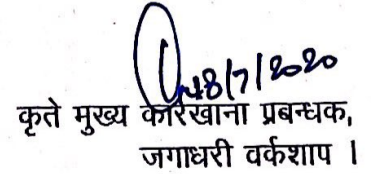 8/7/2020
कृते मुख्य कारखाना प्रबन्धक,
जगाधरी वर्कशाप ।